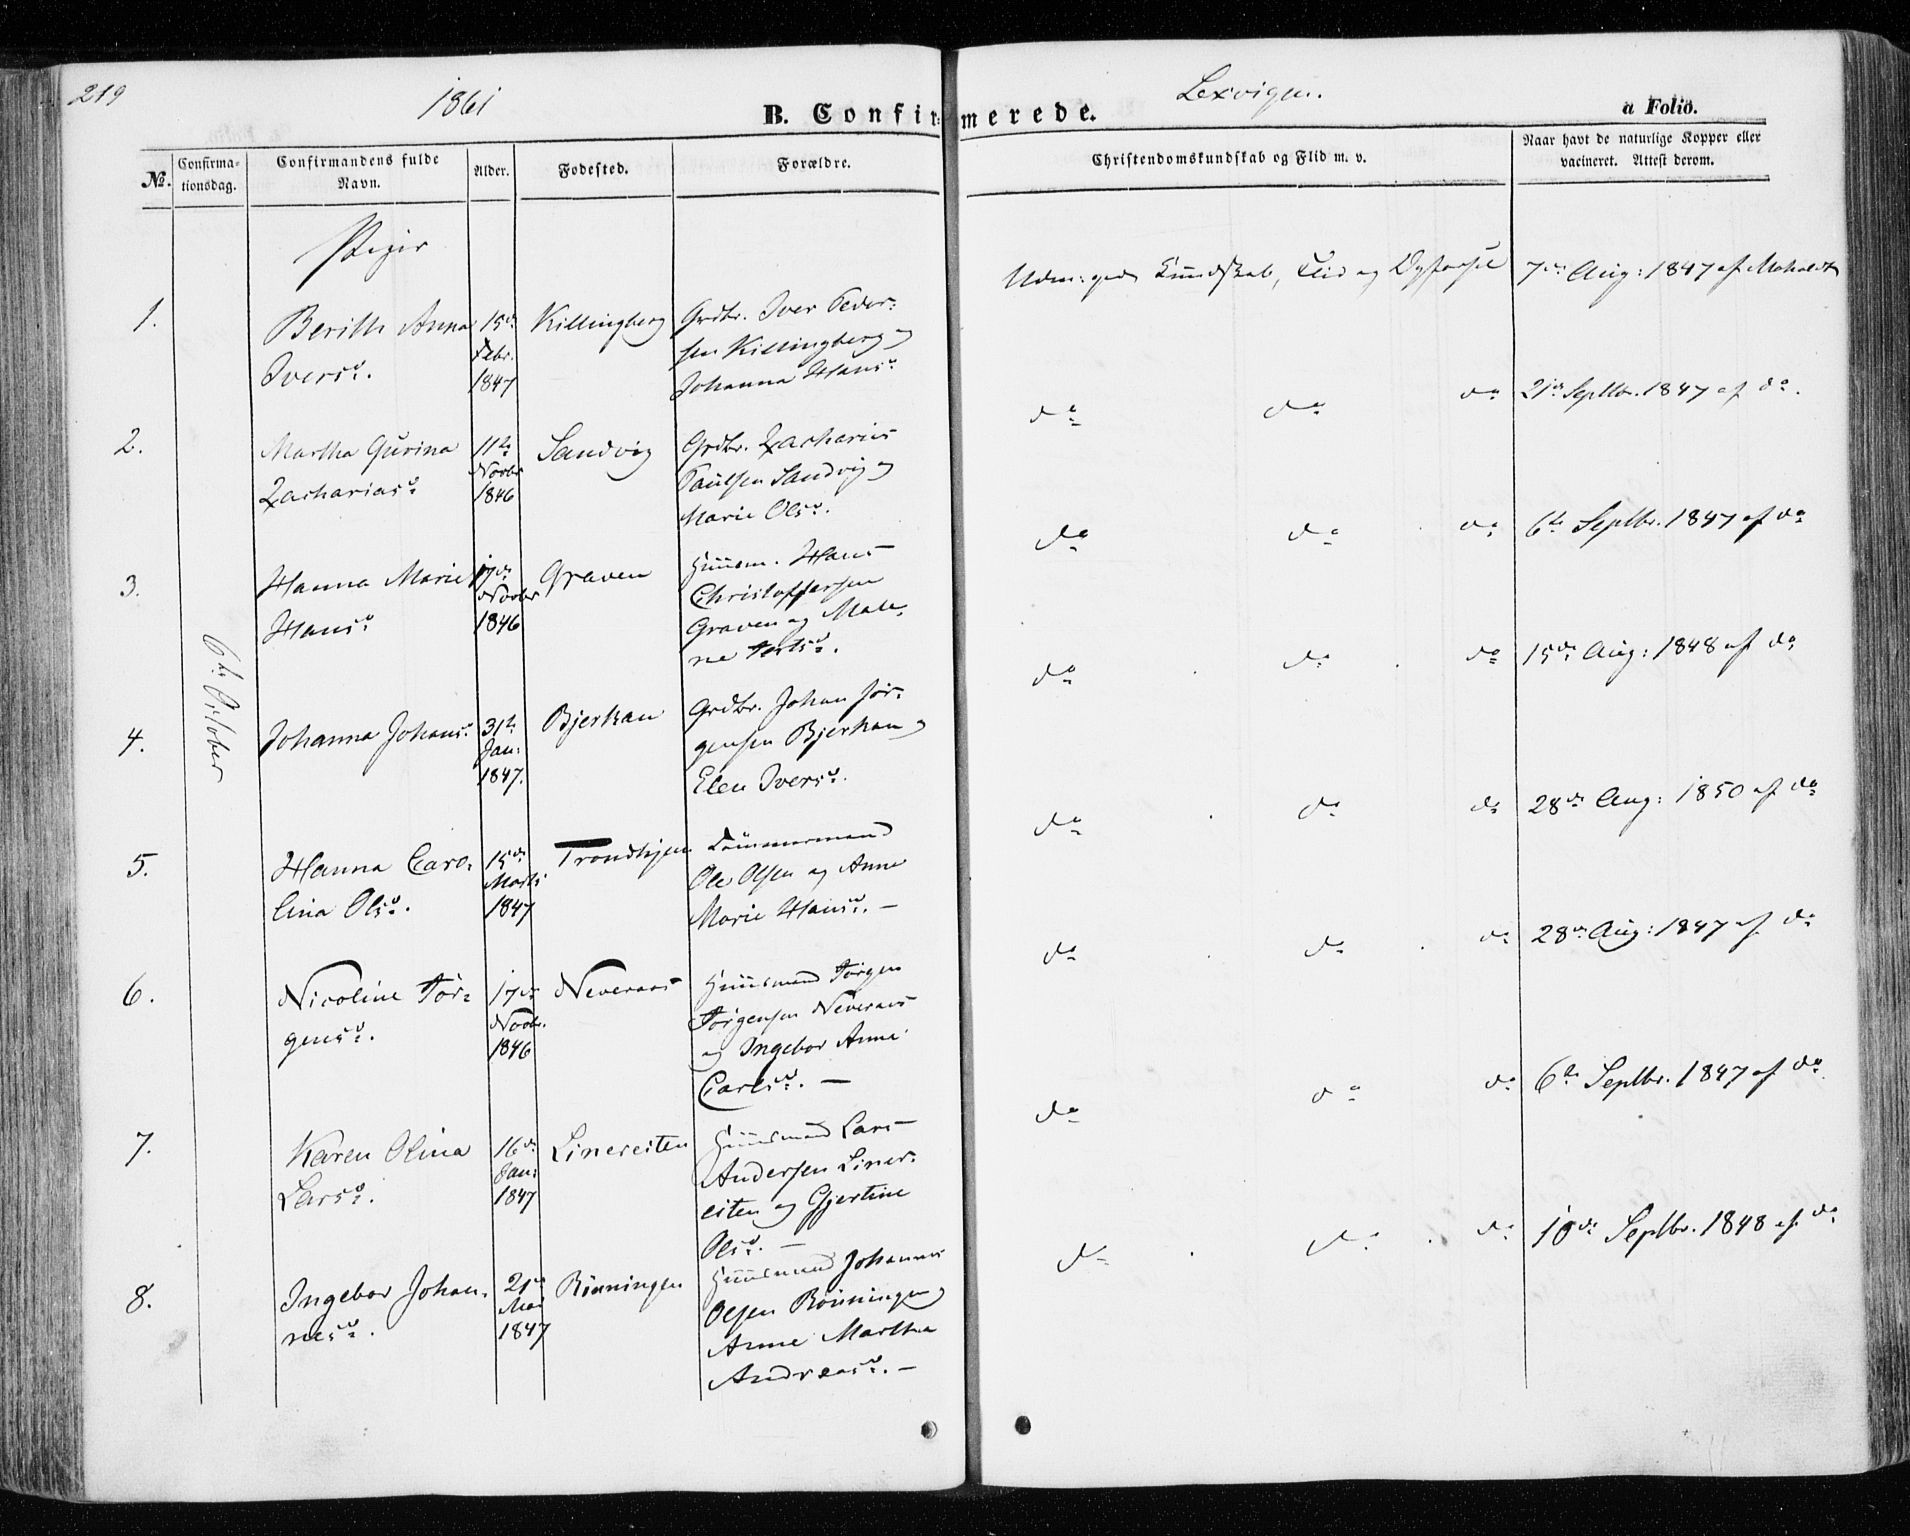 219
1861
Lexvigen.
B. Confirmerede.
a Folio.
No.
Confirma-
tionsdag.
Confirmandens fulde
Navn.
Alder.
Fødested.
Forældre.
Christendomskundskab og Flid m. v.
Naar havt de naturlige Kopper eller
vacineret. Attest derom.
Piger
6te October
1.
Berith Anna
Iversd.
15de
Febr.
1847
Killingberg
Grdbr. Iver Peder-
sen Killingberg og
Johanna Hansd.
Kundskab, Flid og
7de Aug: 1847 af Moholdt
2.
Martha Gurina
Zachariasd.
11te
Novbr
1846
Sandvig
Grdbr. Zacharias
Paulsen Sandvig og
Marie Olsd.
do do do
21de Septbr. 1847 af do.
3.
Hanna Marie
Hansd.
17de
Novbr
1846
Graven
Huusm. Hans
Christoffersen
Graven og Male-
ne
do do do
6te Septbr. 1847 af do
4.
Johanna Johansd.
31te
Jan:
1847.
Bjerkan
Grdbr. Johan Jør-
gensen Bjerkan og
Elen Iversd.
do do do
15de Aug: 1848 af do
5.
Hanna Caro-
lina Olsd.
15de
Marts
1847
Trondhjem
Tømmermand
Ole Olsen og Anne
Marie Hansd. —
do do do
28de Aug: 1850 af do
6.
Nicoline Jør-
gensd.
17de
Novbr.
1846
Neveraas
Huusmand Jørgen
Jørgensen Neveraas
og Ingebor Anne
Carlsd. —
do do do
28de Aug: 1847 af do
7.
Karen Olina
Larsd.
16de
Jan:
1847
Linereiten
Huusmand Lars
Andersen Liner-
eiten og Gjertine
Olsd. —
do do do
6te Septbr. 1847 af do
8.
Ingebor Johan-
nesd.
21de
Mai
1847
Rønningen
Huusmand Johannes
Olsen Rønningen og
Anne Martha
Andreasd. —
do do do
10de Septbr. 1848 af do